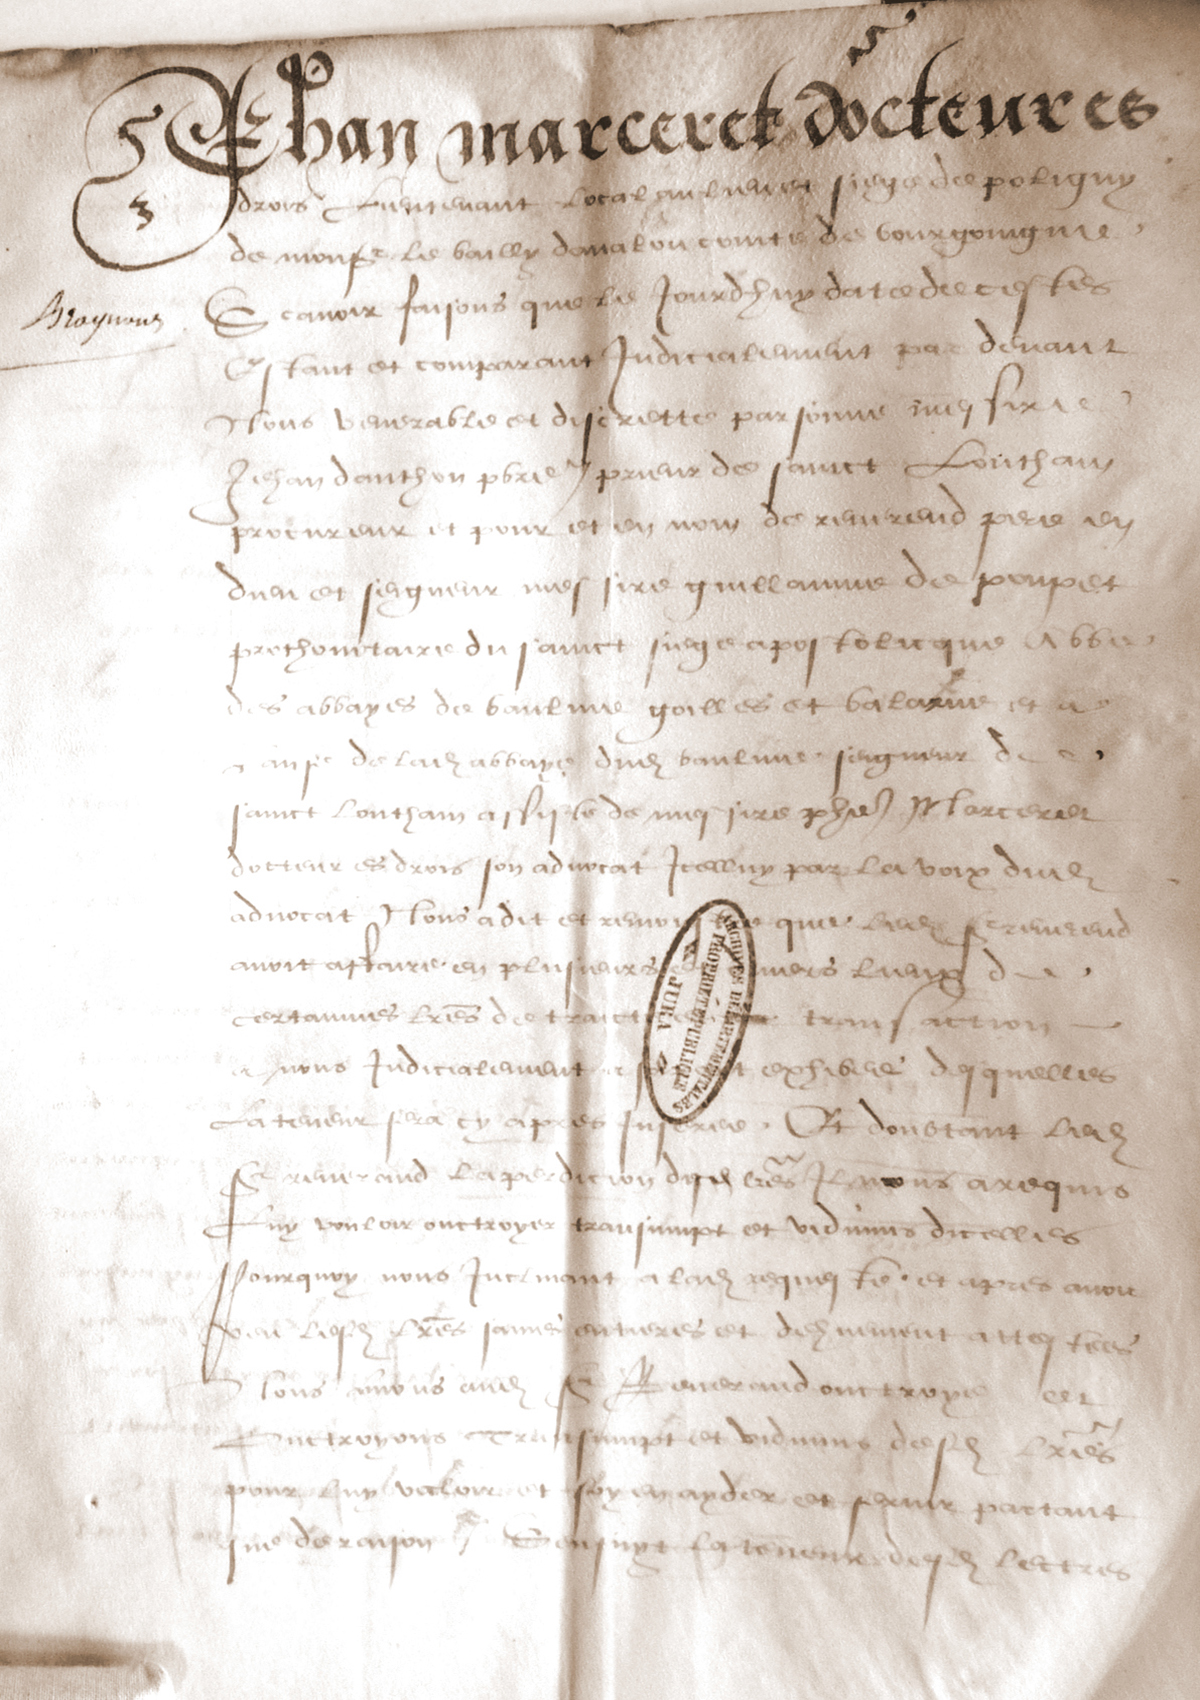 Jehan marceret docteur es
drois Lieutenant local au lieu et siege de poligny
de monsr le bailly daval ou conte de bourgoingne
Scavoir faisons que le Jourdhuy date de cestes
Estant et comparant Judicialement par devant
Nous venerable et discrette parsonne messire
Jehan danthon pbre prieur de sainct Louthain
procureur et pour et en nom de reverend pere en
dieu et seigneur messire guillaume de poupet
prothonotaire du sainct siege apostolicque Abbe
des abbayes de baulme goilles et balarne et a
cause de lad abbaye dud baulme seigneur de
sainct Louthain assiste de messire phe Marceret
docteur es drois son advocat Icelluy par la voix dud
advocat Nous a dit et remonstre que led sr reverend
avoit affaire en plusieurs et divers lieux de
certainnes lres de traicte et transaction
a nous Judicialement exhibee desquelles
La teneur sera cy apres Inseree Et doubtant led
sr reverand la perdicion desd lres Il nous a requis
Luy vouloir onctroyer transumpt et vidimus dicelles
Pourquoy nous Inclinant a lad requeste et apres avoir
veu lesd lres sainnes entieres et dehuement attestees
Nous avons aud sr Reverand onctroye et
Onctroyons Transumpt et vidimus desd lres
pour luy valoir et soy en ayder et servir partant
que de raison Sensuyt la teneur desd lectres
ARCHIVES DÉPARTEMENTALES
PROPRIÉTÉ PUBLIQUE
JURA